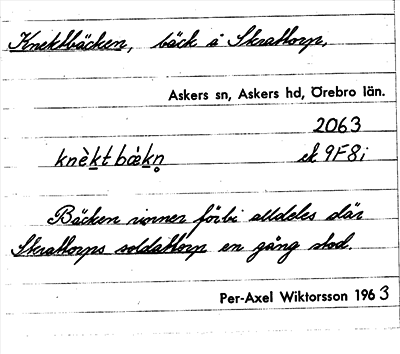 Knektbäcken, bäck å Skrattorp.
Askers sn, Askers hd, Örebro län.
2063
knèktbæ̀kn̥ ek 9F8i
Bäcken rinner förbi alldeles där
Skrattorps soldattorp en gång stod.
Per-Axel Wiktorsson 1963